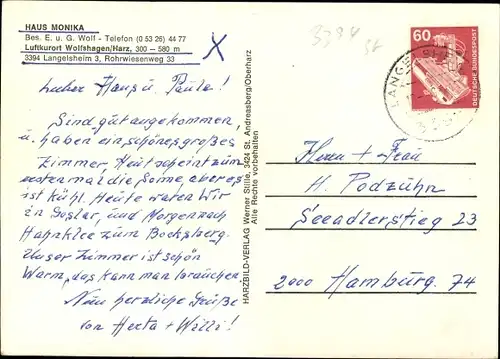 HAUS MONIKA
Bes. E. u. G. Wolf - Telefon (0 53 26) 44 77
Luftkurort Wolfshagen/Harz, 300 – 580 m
3394 Langelsheim 3, Rohrwiesenweg 33
X
3394
Lieber Hans u. Paula!
Sind gut angekommen,
u. haben ein schönes großes
Zimmer. Heut scheint zum
ersten mal die Sonne, aber es
ist kühl. Heute waren Wir
in Goslar, und Morgen nach
Hahnklee zum Bocksberg.
Unser Zimmer ist schön
Warm, das kann man brauchen.
Nun herzliche Grüße
von Herta + Willi!
HARZBILD-VERLAG Werner Stille, 3424 St. Andreasberg/Oberharz
Alle Rechte vorbehalten
60
DEUTSCHE BUNDESPOST
Herrn + Frau
H. Podzuhn
Seeadlerstieg 23
2000 Hamburg. 74